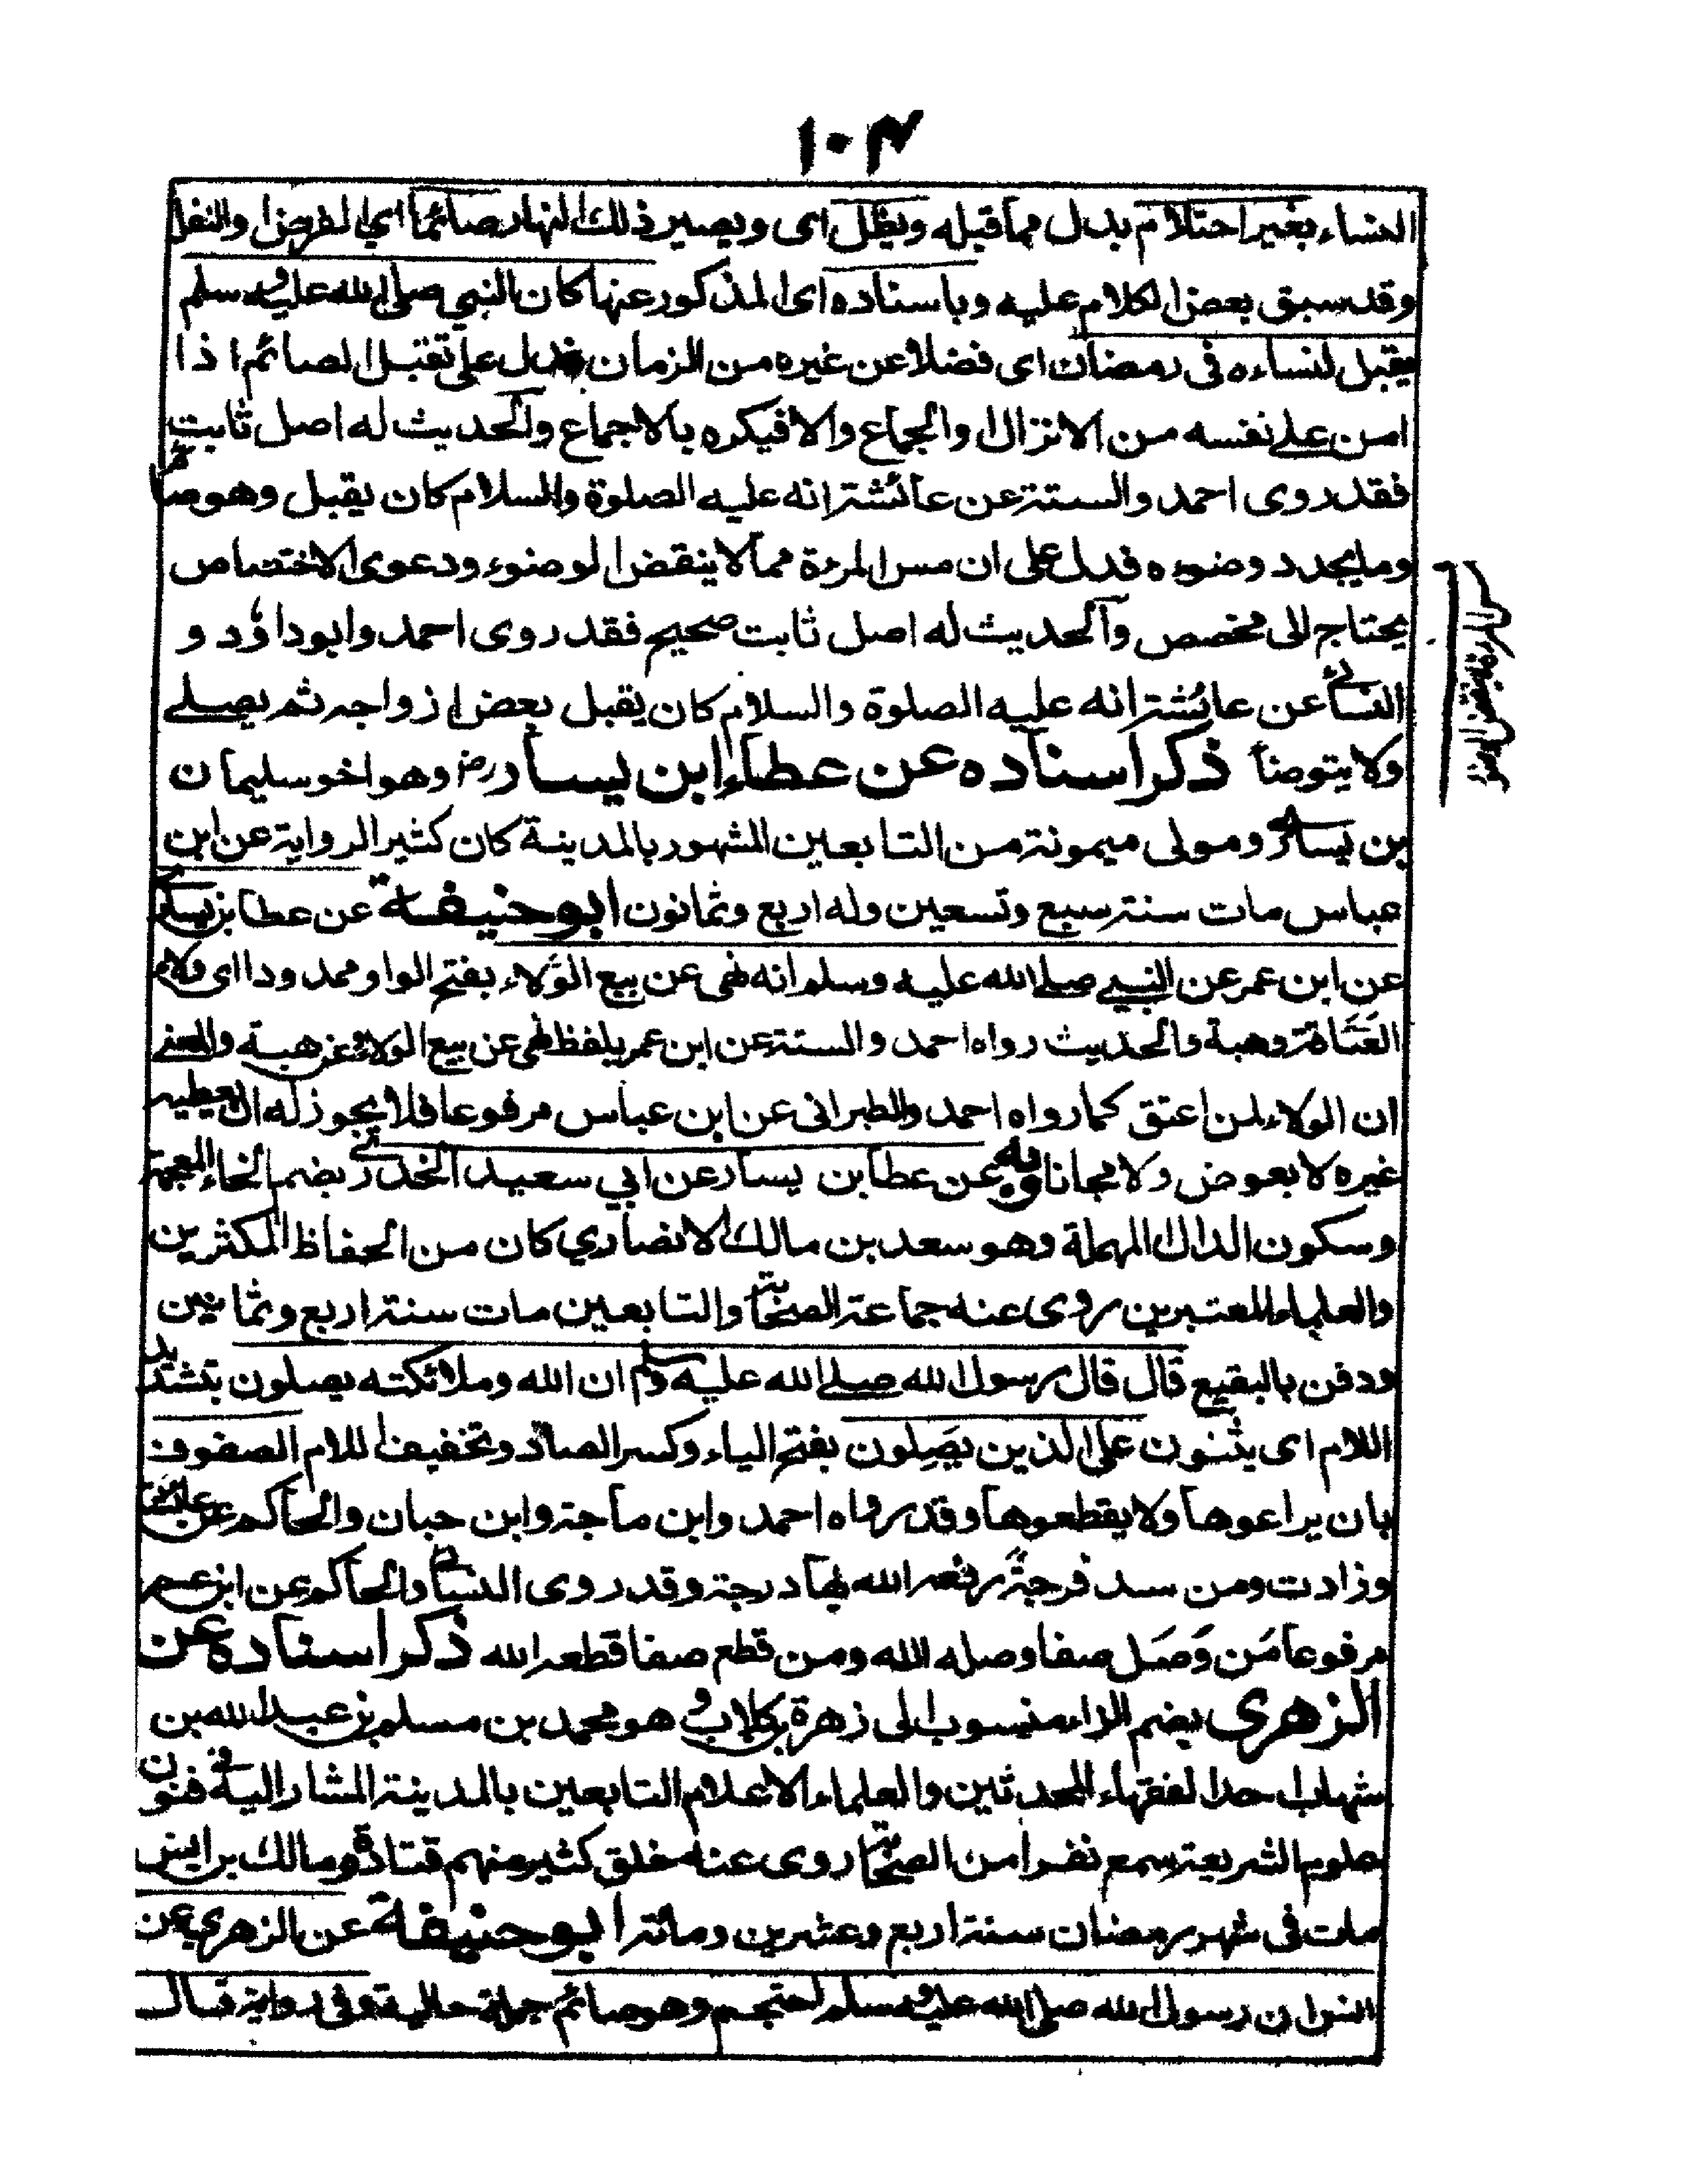 ١٠٤
النساء بغير احتلام بدل مما قبله ويظل اى ويصير ذلك النهار صائما اي الفرض والنفل
وقد سبق بعض الكلام عليه وباسناده اى المذكور عنها كان النبي صلى الله عليه وسلم
يقبل لنساءه فى رمضان اى فضلا عن غيره من الزمان فدل على تقبل الصائم اذا
امن على نفسه من الانزال والجماع والا فيكره بالاجماع والحديث له اصل ثابت
فقد روى احمد والستة عن عائشة انه عليه الصلوة والسلام كان يقبل وهو صائم
وما يجدد وضوءه فدل على ان مس المرءة مما لا ينقض الوضوء ودعوى الاختصاص
يحتاج الى مخصص والحديث له اصل ثابت صحيح فقد روى احمد وابو داؤد و
النسائي عن عائشة انه عليه الصلوة والسلام كان يقبل بعض ازواجه ثم يصلے
ولا يتوضأ ذكر اسناده عن عطاء ابن يسار رض وهو اخو سليمان
بن يسار ومولى ميمونة من التابعين المشهور بالمدينة كان كثير الرواية عن ابن
عباس مات سنة سبع وتسعين وله اربع وثمانون ابو حنيفة عن عطا بن يسار
عن ابن عمر عن النبي صلے الله عليه وسلم انه نهى عن بيع الوَلاء بفتح الواو ممدودا اى ولاء
العَتَاقة وهبة والحديث رواه احمد والستة عن ابن عمر بلفظ نهى عن بيع الولاء وعن هبة والمعنى
ان الولاء لمن اعتق كما رواه احمد والطبرانى عن ابن عباس مرفوعا فلا يجوز له ان يعطيه
غيره لا بعوض ولا مجانا وبه عن عطا بن يسار عن ابي سعيد الخدري بضم الخاء المعجمة
وسكون الدال المهملة وهو سعد بن مالك الانصاري كان من الحفاظ المكثرين
والعلماء المعتبرين روى عنه جماعة الصحابة والتابعين مات سنة اربع وثمانين
ودفن بالبقيع قال قال رسول الله صلے الله عليه وسلم ان الله وملائكته يصلون بتشديد
اللام اى يثنون على الذين يَصِلون بفتح الياء وكسر الصاد وتخفيف اللام الصفوف
بان يراعوها ولا يقطعوها وقد رواه احمد وابن ماجة وابن حبان والحاكم عن عائشة
وزادت ومن سد فرجة رفعه الله بها درجة وقد روى النسائي والحاكم عن ابن عمر
مرفوعا مَن وَصَل صفا وصله الله ومن قطع صفا قطعه الله ذكر اسناده عن
الزهرى بضم الزاء منسوب الى زهرة بن كلاب وهو محمد بن مسلم بن عبد الله بن
شهاب احد الفقهاء المحدثين والعلماء الاعلام التابعين بالمدينة المشار اليه فى فنون
علوم الشريعة سمع نفرا من الصحابة روى عنه خلق كثير منهم قتادة ومالك بن انس
مات فى شهر رمضان سنة اربع وعشرين ومائة ابو حنيفة عن الزهري عن
انس ان رسول الله صلى الله عليه وسلم احتجم وهو صائم جملة حالية وفى رواية قال